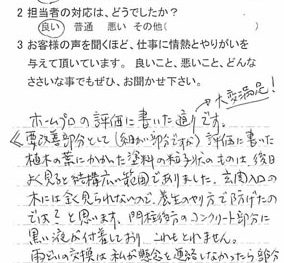 2 担当者の対応は、どうでしたか?
良い 普通 悪い その他( )
3 お客様の声を聞くほど、仕事に情熱とやりがいを
与えて頂いています。 良いこと、悪いこと、どんな
ささいな事でもぜひ、お聞かせ下さい。
大変満足!
ホームプロの評価に書いた通りです。
《要改善部分として(細かい部分ですが)評価に書いた
植木の葉にかかった塗料の粒子状のものは、後日
よく見ると結構広い範囲でありました。玄関入口の
木には全く見られないので、養生のやり方で防げたの
では?と思います。門柱後方のコンクリート部分に
黒い液が付着しており これもとれません。
雨どいの交換は私が懸念を連絡しなかったら部分